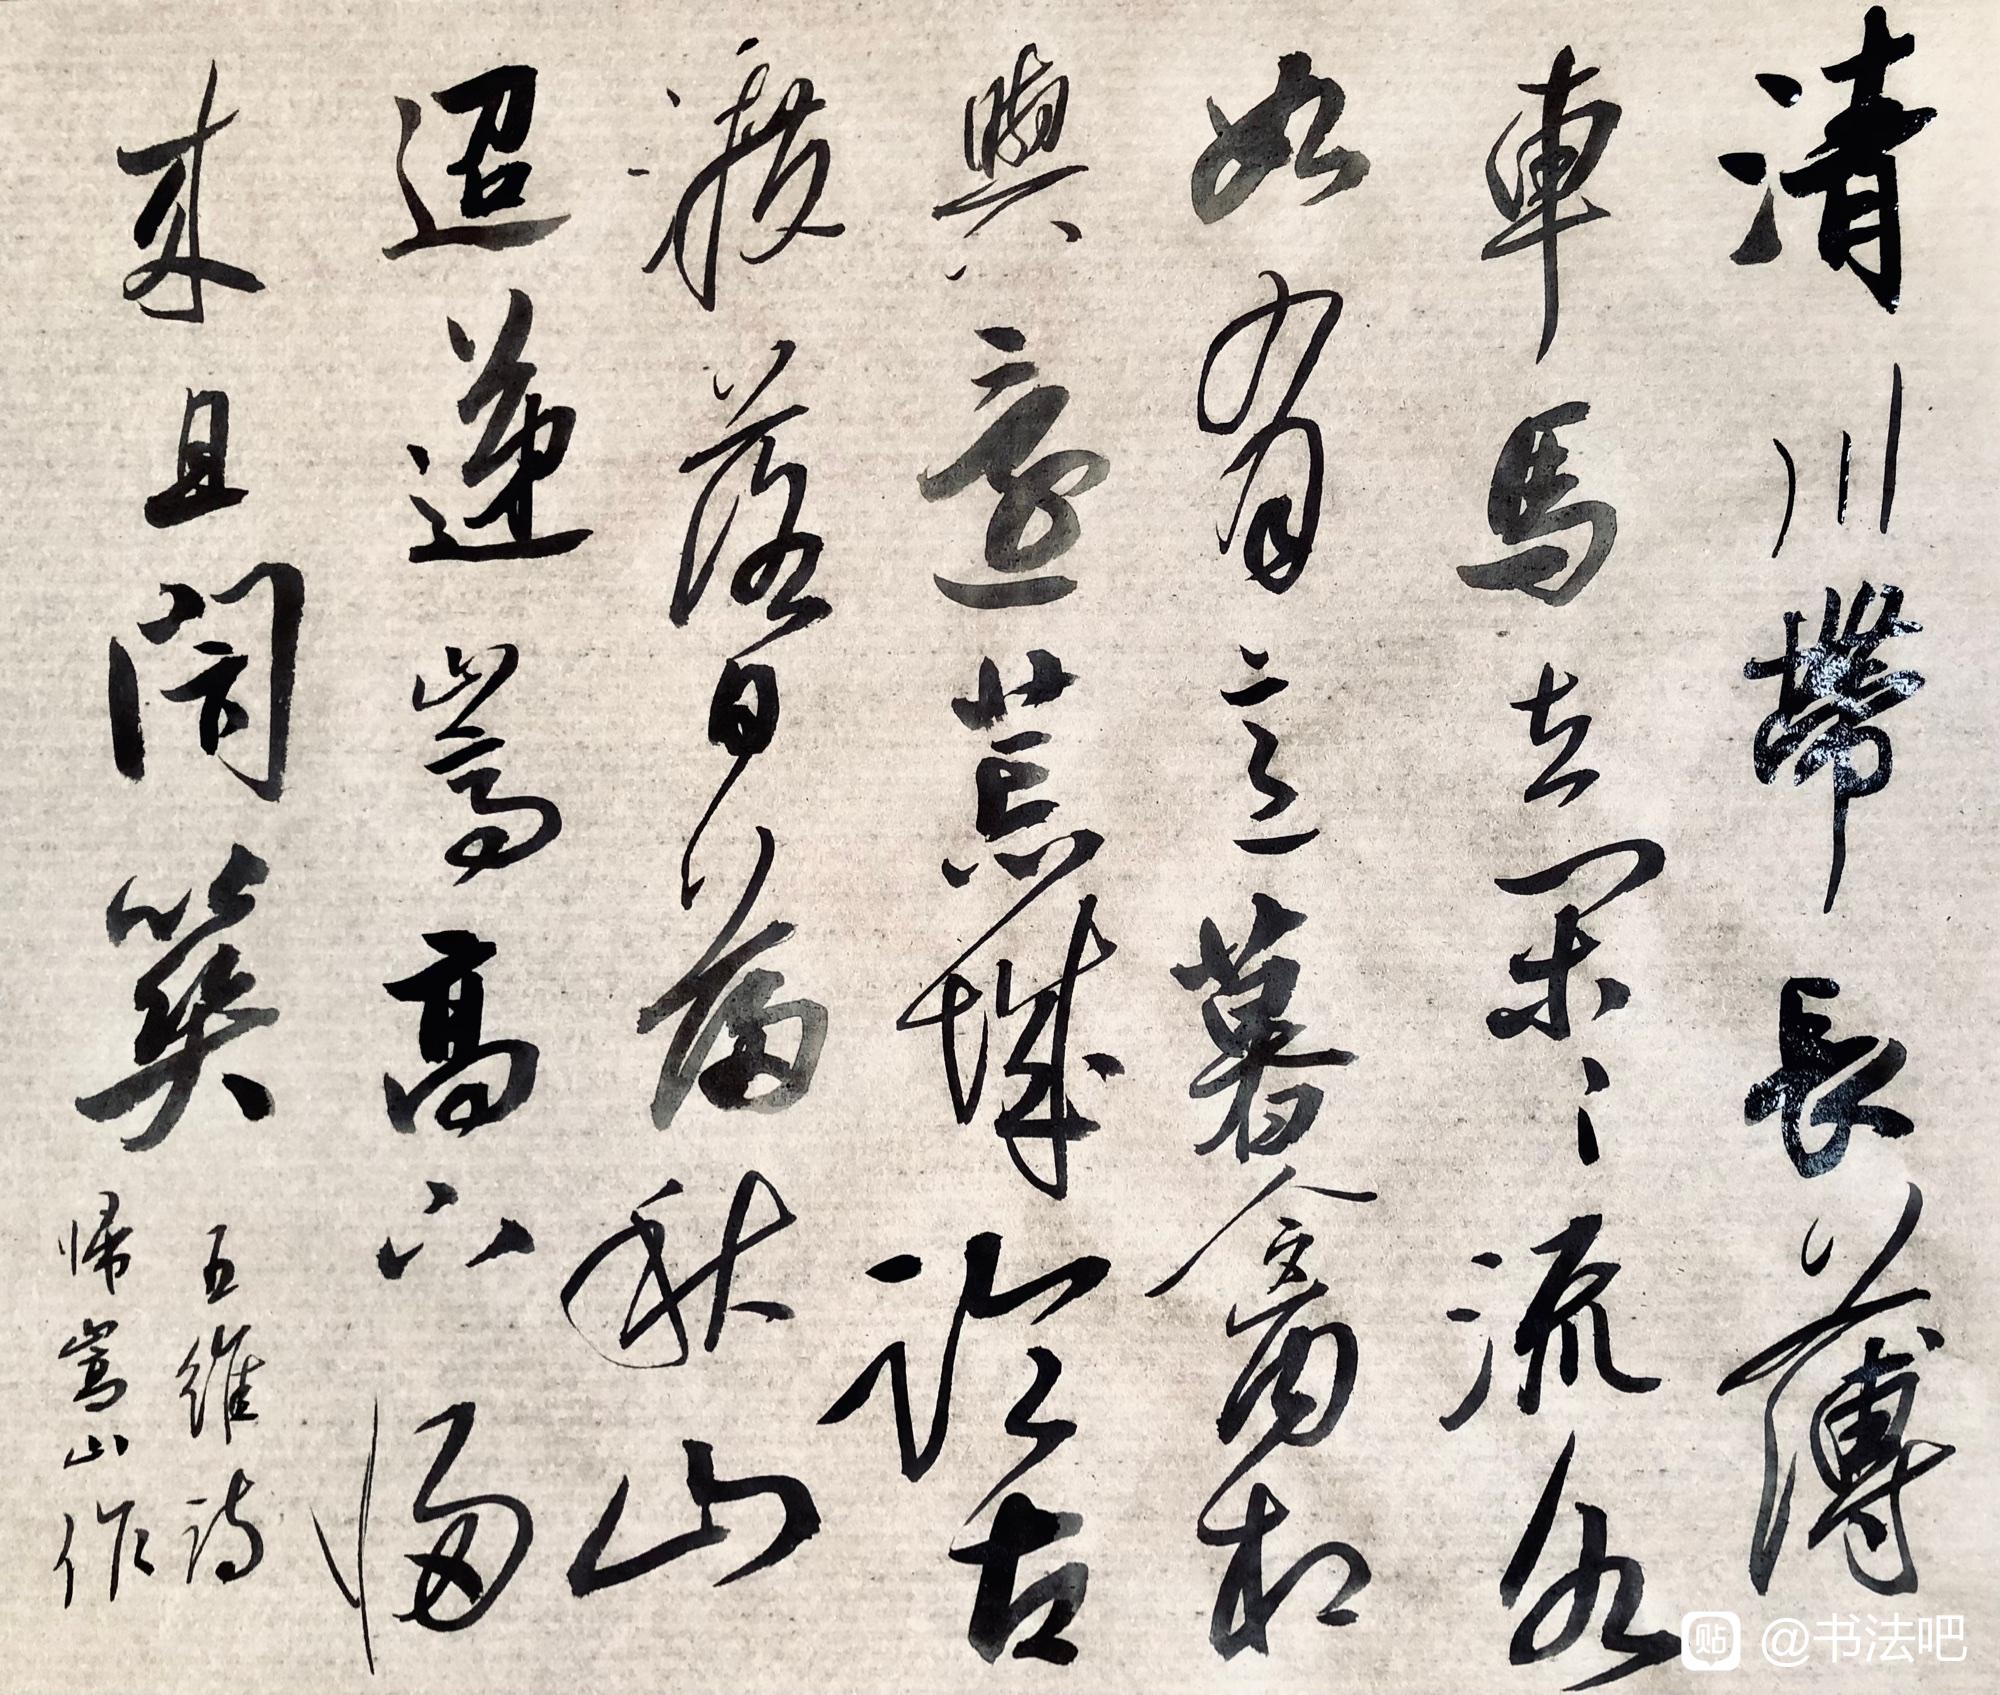 清川帶長薄
車馬去閑〻流水
如有意暮禽相
與還荒城臨古
渡落日滿秋山
迢遞嵩高下歸
來且閉關
王維詩
歸嵩山作
貼 @书法吧